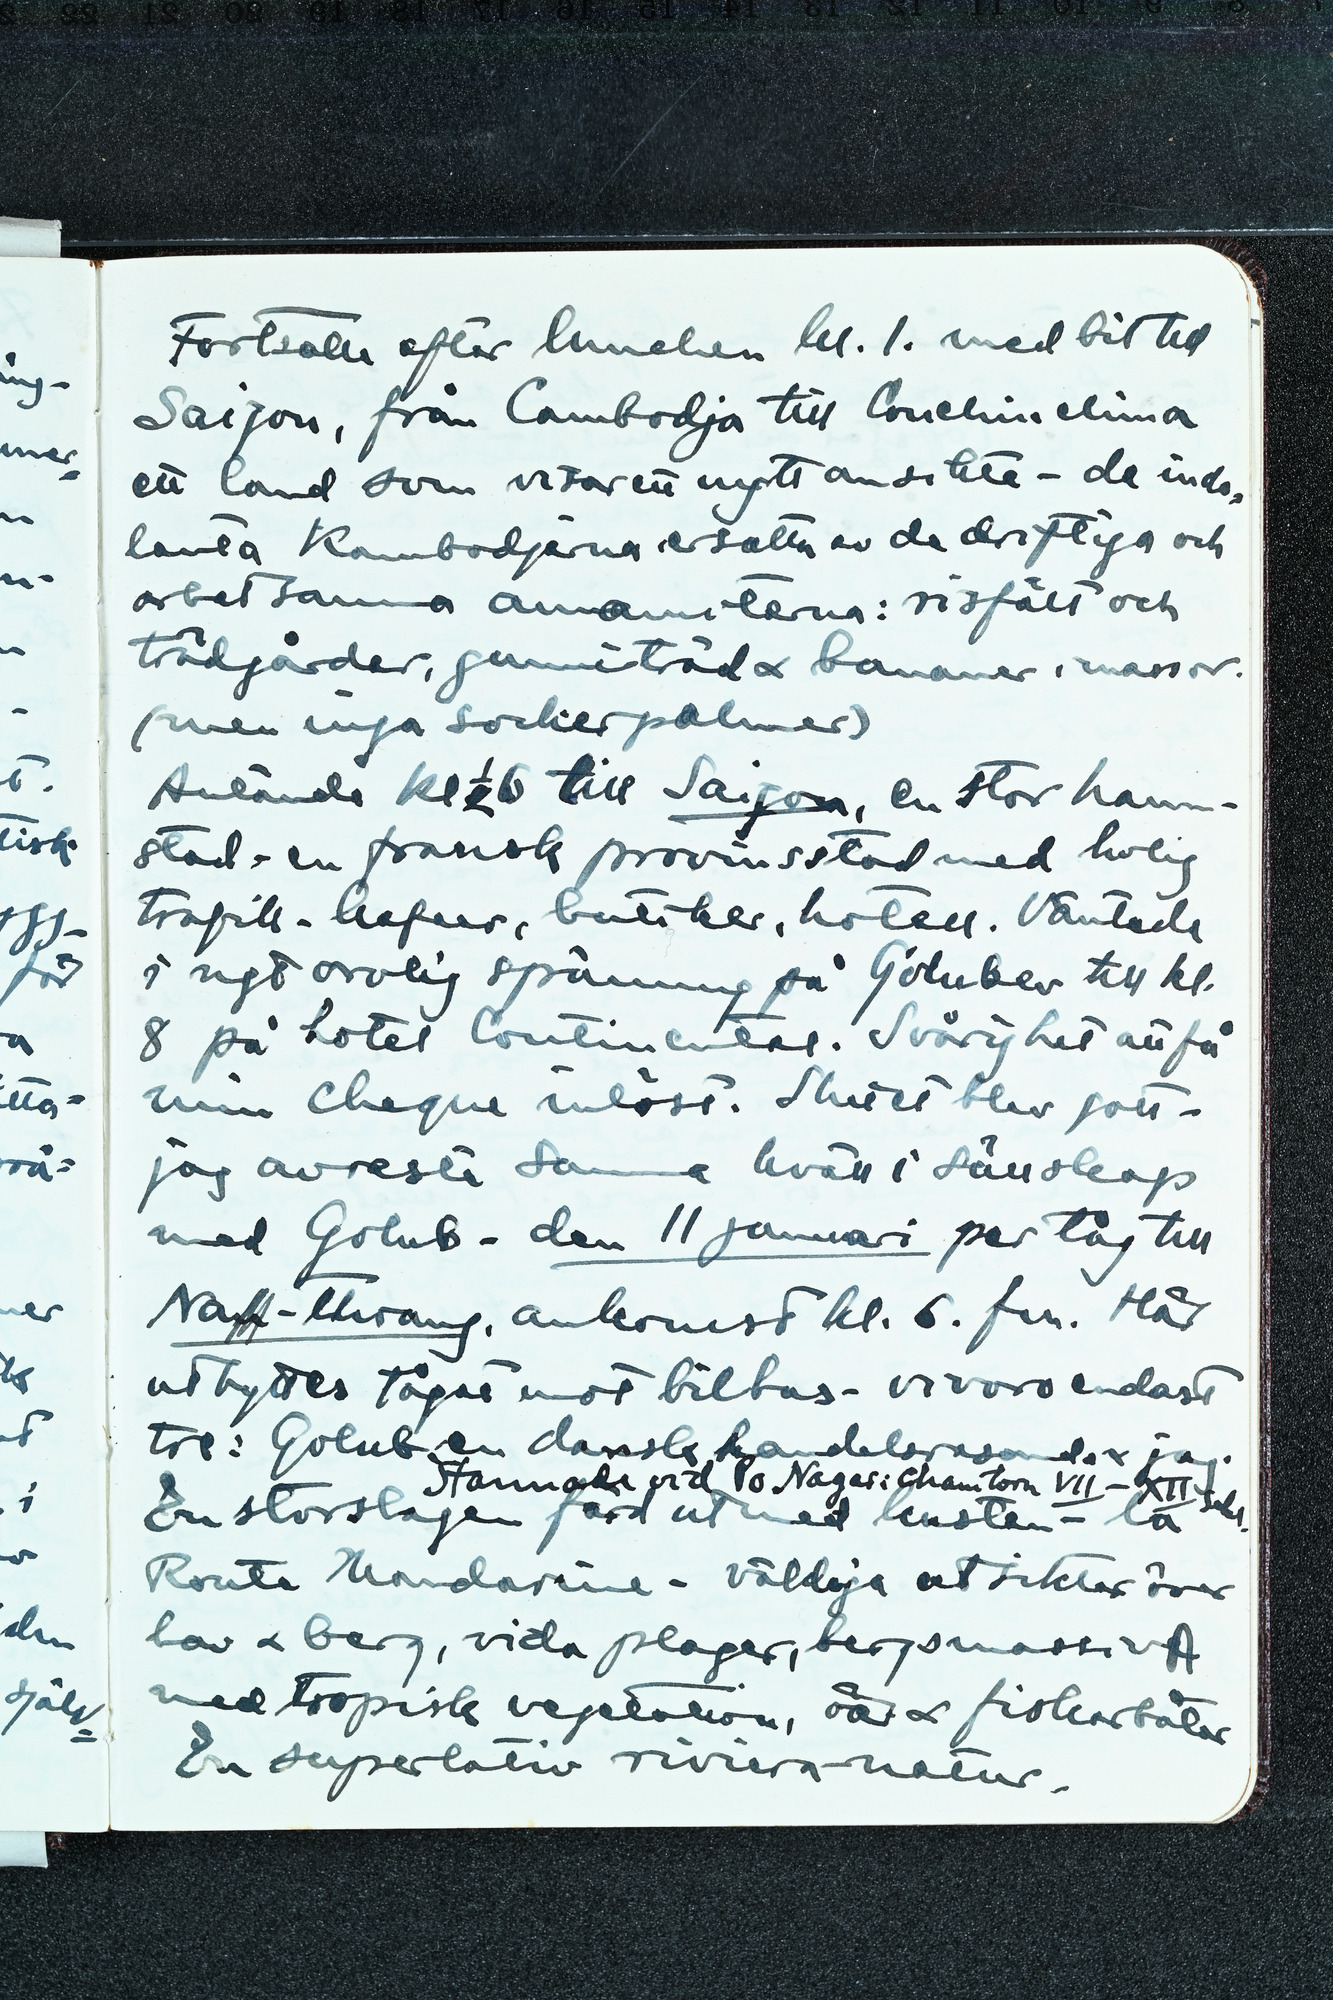 Fortsatte efter lunchen kl. 1. med bil till
Saigon, från Cambodja till Couchinchina
ett land som visar ett nytt ansikte - de indo-
lenta Kambodjerna ersatta av de driftiga och
arbetsamma annamiterna: risfält och
trädgårdar, gummiträd & bananer i massor.
(men inga sockerpalmer)
Anlände kl ½6 till Saigon, en stor hamn-
stad - en fransk provinsstad med livlig
trafik - kaféer, butiker, hotell. Väntade
i rysligt orolig spänning på Golubew till kl.
8 på hotel Continental. Svårighet att få
min cheque inlöst. Slutet blev gott -
jag avreste samma kväll i sällskap
med Golub - den 11 januari per tåg till
Naff-Throang, ankomst kl. 6. fm. Här
utbyttes tåget mot bilbus - vi voro endast
tre: Golub, en dansk handelsresande & jag.
Stannade vid Po Nagar: Chamtorn VII - XII sekl.
En storslagen färd ut med kusten - la
Route Mandarine - väldiga utsikter över
hav & berg, vida plager, bergsmassiv
med tropisk vegetation, öar & fiskarbåtar
En superlativ riviera-natur.
22 21 20 19 18 17 16 15 14 13 12 11 10 9 8 7